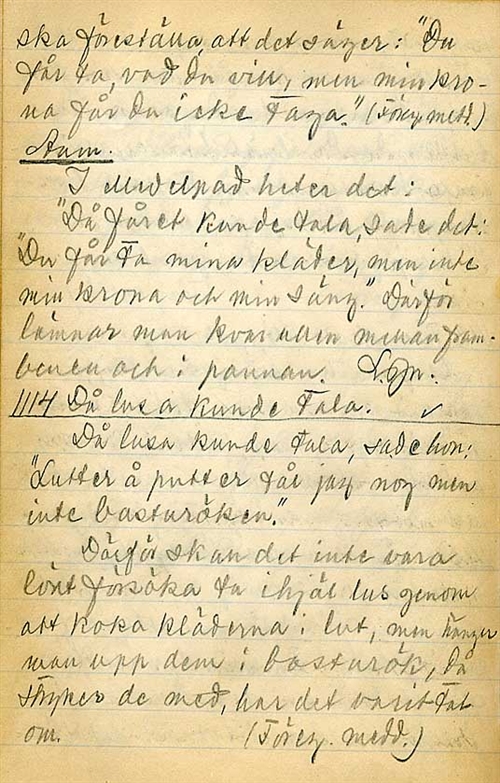 ska föreställa, att det säger: "Du
får ta, vad du vill, men min kro-
na får du icke taga." (Föreg. medd.)
Anm.
I Medelpad heter det:
"Då fåret kunde tala, sade det:
"Du får ta mina kläder, men inte
min krona och min säng." Därför
lämnar man kvar ullen mellan fram-
benen och i pannan.
1114 Då lusa kunde tala. ✓
Då lusa kunde tala, sade hon:
"Lutter å putter tål jag nog men
inte basturöken."
Därför skan det inte vara
lönt försöka ta ihjäl lus genom
att koka kläderna i lut, men hänger
man upp dem i basturök, då
stryker de med, har det varit tal
om. (Föreg. medd.)